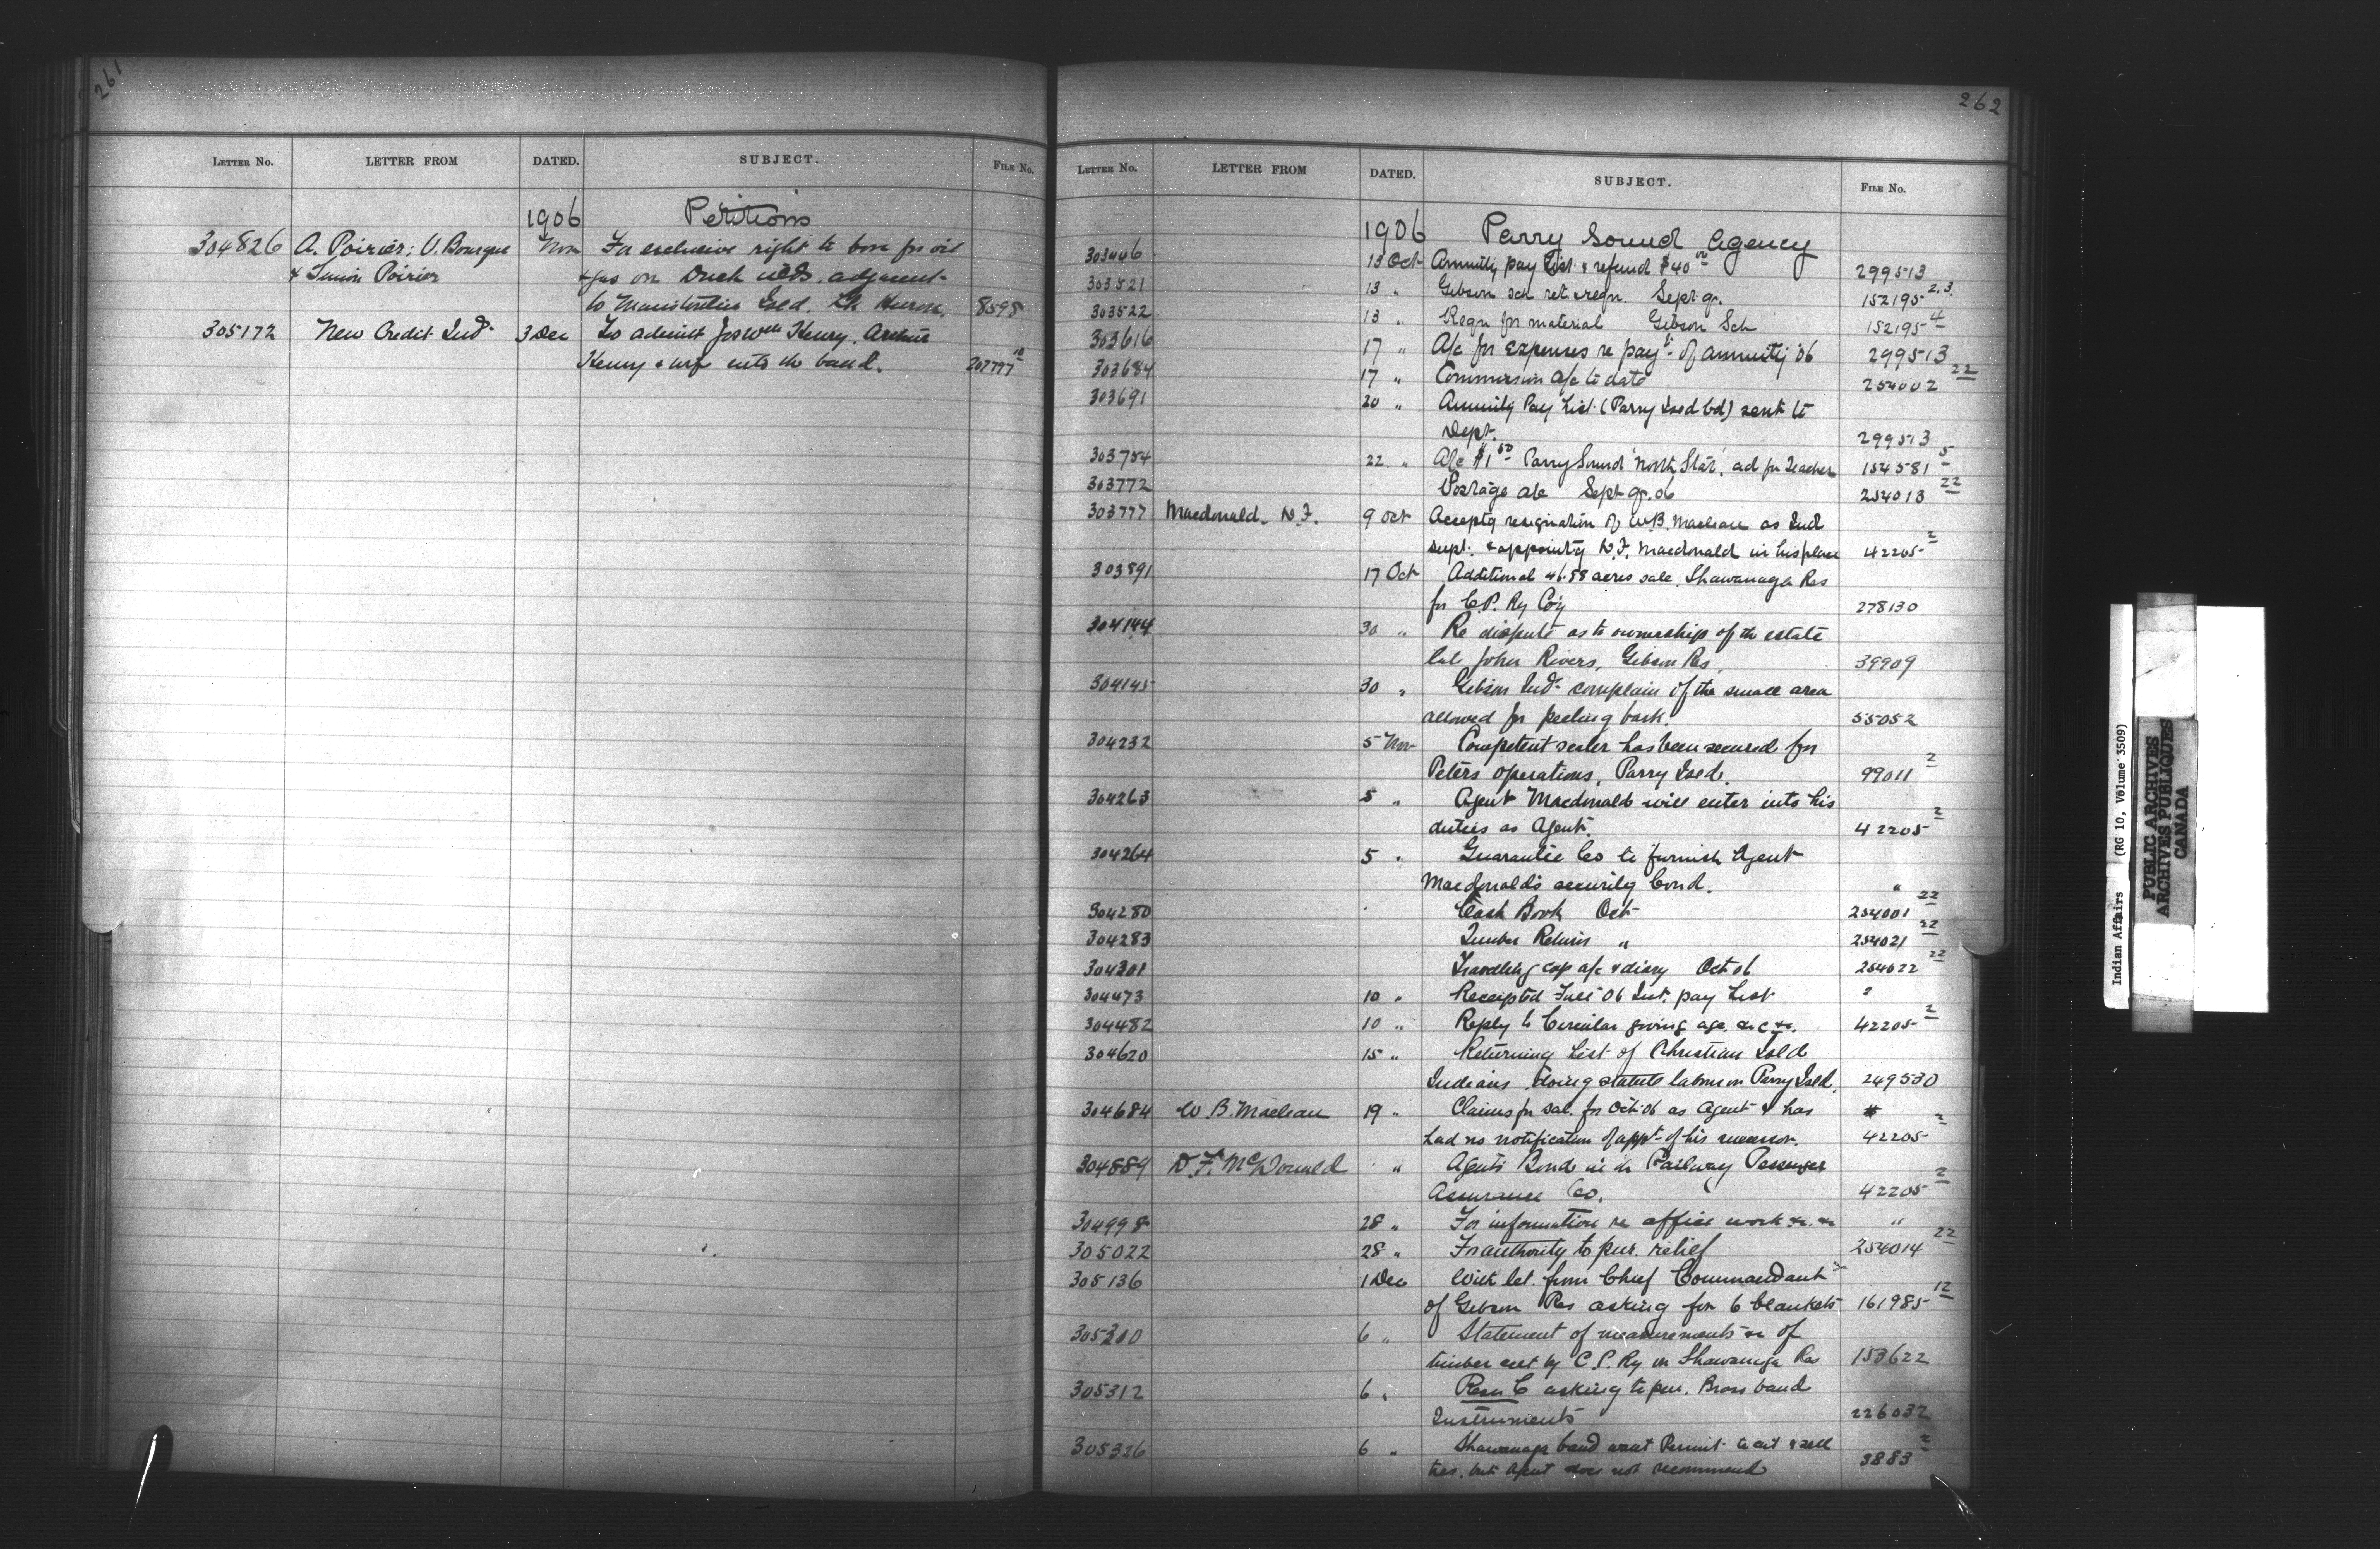 261
LETTER No. LETTER FROM DATED. SUBJECT. FILE No.
1906 Petitions
304826 A. Poirier; U. Bourque Nov For exclusive right to bore for oil
& Simon Poirier & gas on Duck islds. adjacent
to Manitoulin Isld. Lk Huron. 8598
305172 New Credit Inds. 3 Dec To admit Jos Wm Henry. Arthur
Henry & wife into the band. 207797
262
LETTER No. LETTER FROM DATED. SUBJECT. FILE No.
1906 Parry Sound Agency
303446 13 Oct Annuity pay List & refund $40 00 299513
303521 13 " Gibson sch ret. & reqn. Sept qr. 152195 2.3.
303522 13 " Reqn for material Gibson Sch 152195 4
303616 17 " A/c for expenses re payt. of annuity '06 299513
303684 17 " Commission a/c to date 254002 22
303691 20 " Annuity Pay List (Parry Isld bd) sent to
Dept. 299513
303754 22 " A/c $1 50 Parry Sound "North Star", ad for Teacher 154581 5
303772 Postage a/c Sept qr. 06 254013 22
303777 Macdonald. D.F. 9 Oct Acceptg resignation of W.B. Maclean as Ind
Supt. & appointg D.F. Macdonald in his place 42205 2
303891 17 Oct Additional 46.88 acres sale, Shawanaga Res
for C.P. Ry Coy 278130
304144 30 " Re dispute as to ownership of the estate
late John Rivers, Gibson Res. 39909
304145 30 " Gibson Inds. complain of the small area
allowed for peeling bark. 55052
304232 5 Nov Competent scaler has been secured for
Peters operations, Parry Isld. 99011 2
304263 5 " Agent Macdonald will enter into his
duties as Agent. 42205 2
304264 5 " Guarantee Co to furnish Agent
Macdonald's security bond. "
304280 Cash Book Oct 254001 22
304283 Timber Return " 254021 22
304301 Travelling exp a/c & diary Oct 06 254022 22
304473 10 " Receipted Fall '06 Int. pay List ?
304482 10 " Reply to Circular giving age. &c &c. 42205 2
304620 15 " Returning List of Christian Isld
Indians doing statute labour on Parry Isld. 249530
304684 W. B. Maclean 19 " Claims for sal. for Oct. 06 as Agent & has
had no notification of appt. of his successor. 42205 2
304889 D. F. McDonald " Agents Bond in the Railway Passenger
Assurance Co. 42205 2
304998 28 " For information re office work &c. &c "
305022 28 " For authority to pur. relief 254014 22
305136 1 Dec With let. from Chief Commandant
of Gibson Res asking for 6 blankets 161985 12
305310 6 " Statement of measurements &c of
timber cut by C.P. Ry on Shawanaga Res 153622
305312 6 " Resn C asking to pur. Brass band
Instruments 226032
305326 6 " Shawanaga band want Permit to cut & sell
ties, but Agent does not recommend 3883 2
Indian Affairs (RG 10, Volume 3509)
PUBLIC ARCHIVES
ARCHIVES PUBLIQUES
CANADA